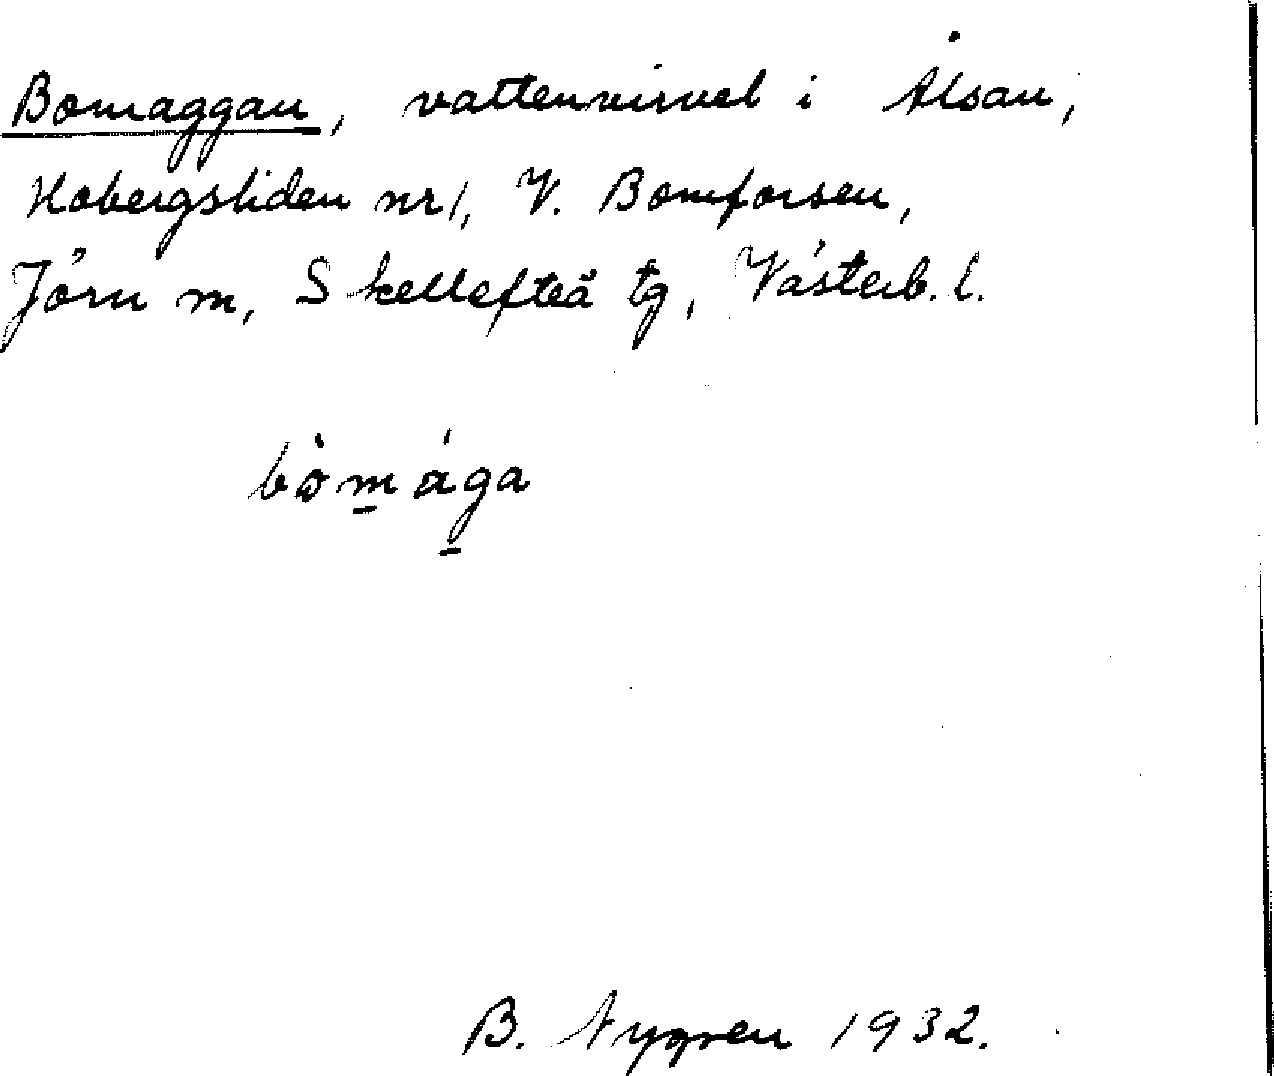 Bomaggan, vattenvirvel i Ålsån,
Hobergsliden nr 1, V. Bomforsen,
Jörn m, Skellefteå tg, Västerb. l.
bòmága
B. Nygren 1932.